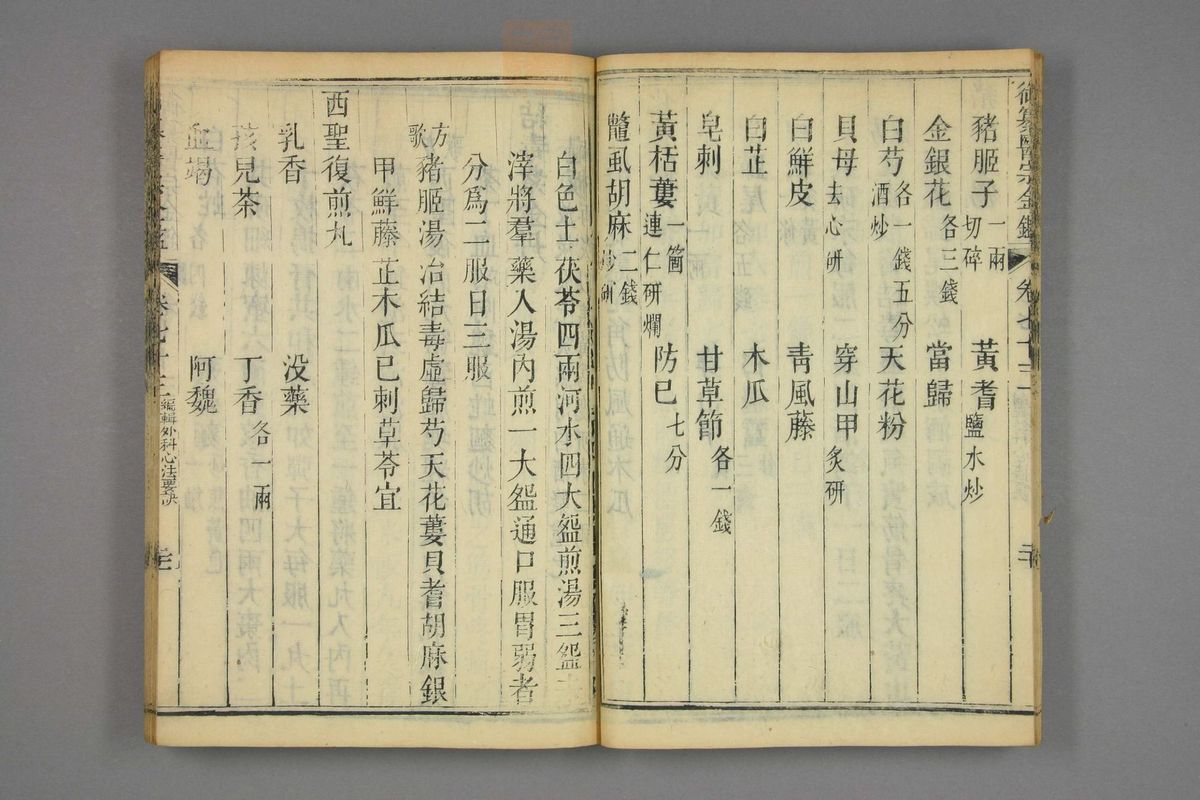 御纂醫宗金鑑 卷七十三
豬胑子一兩切碎 黃耆鹽水炒
金銀花各三錢 當歸
白芍各一錢五分酒炒 天花粉
貝母去心研 穿山甲炙研
白鮮皮 青風藤
白芷 木瓜
皂刺 甘草節各一錢
黃栝蔞一箇連仁研爛 防已七分
鼈虱胡麻二錢炒研
白色土茯苓四兩河水四大盌煎湯三盌去
滓將羣藥入湯內煎一大盌通口服胃弱者
分爲二服日三服
方歌 豬胑湯治結毒虛歸芍天花蔞貝耆胡麻銀
甲鮮藤芷木瓜已刺草苓宜
西聖復煎丸
乳香 没藥
孩兒茶 丁香各一兩
血竭 阿魏
卷七十三 編輯外科心法要訣